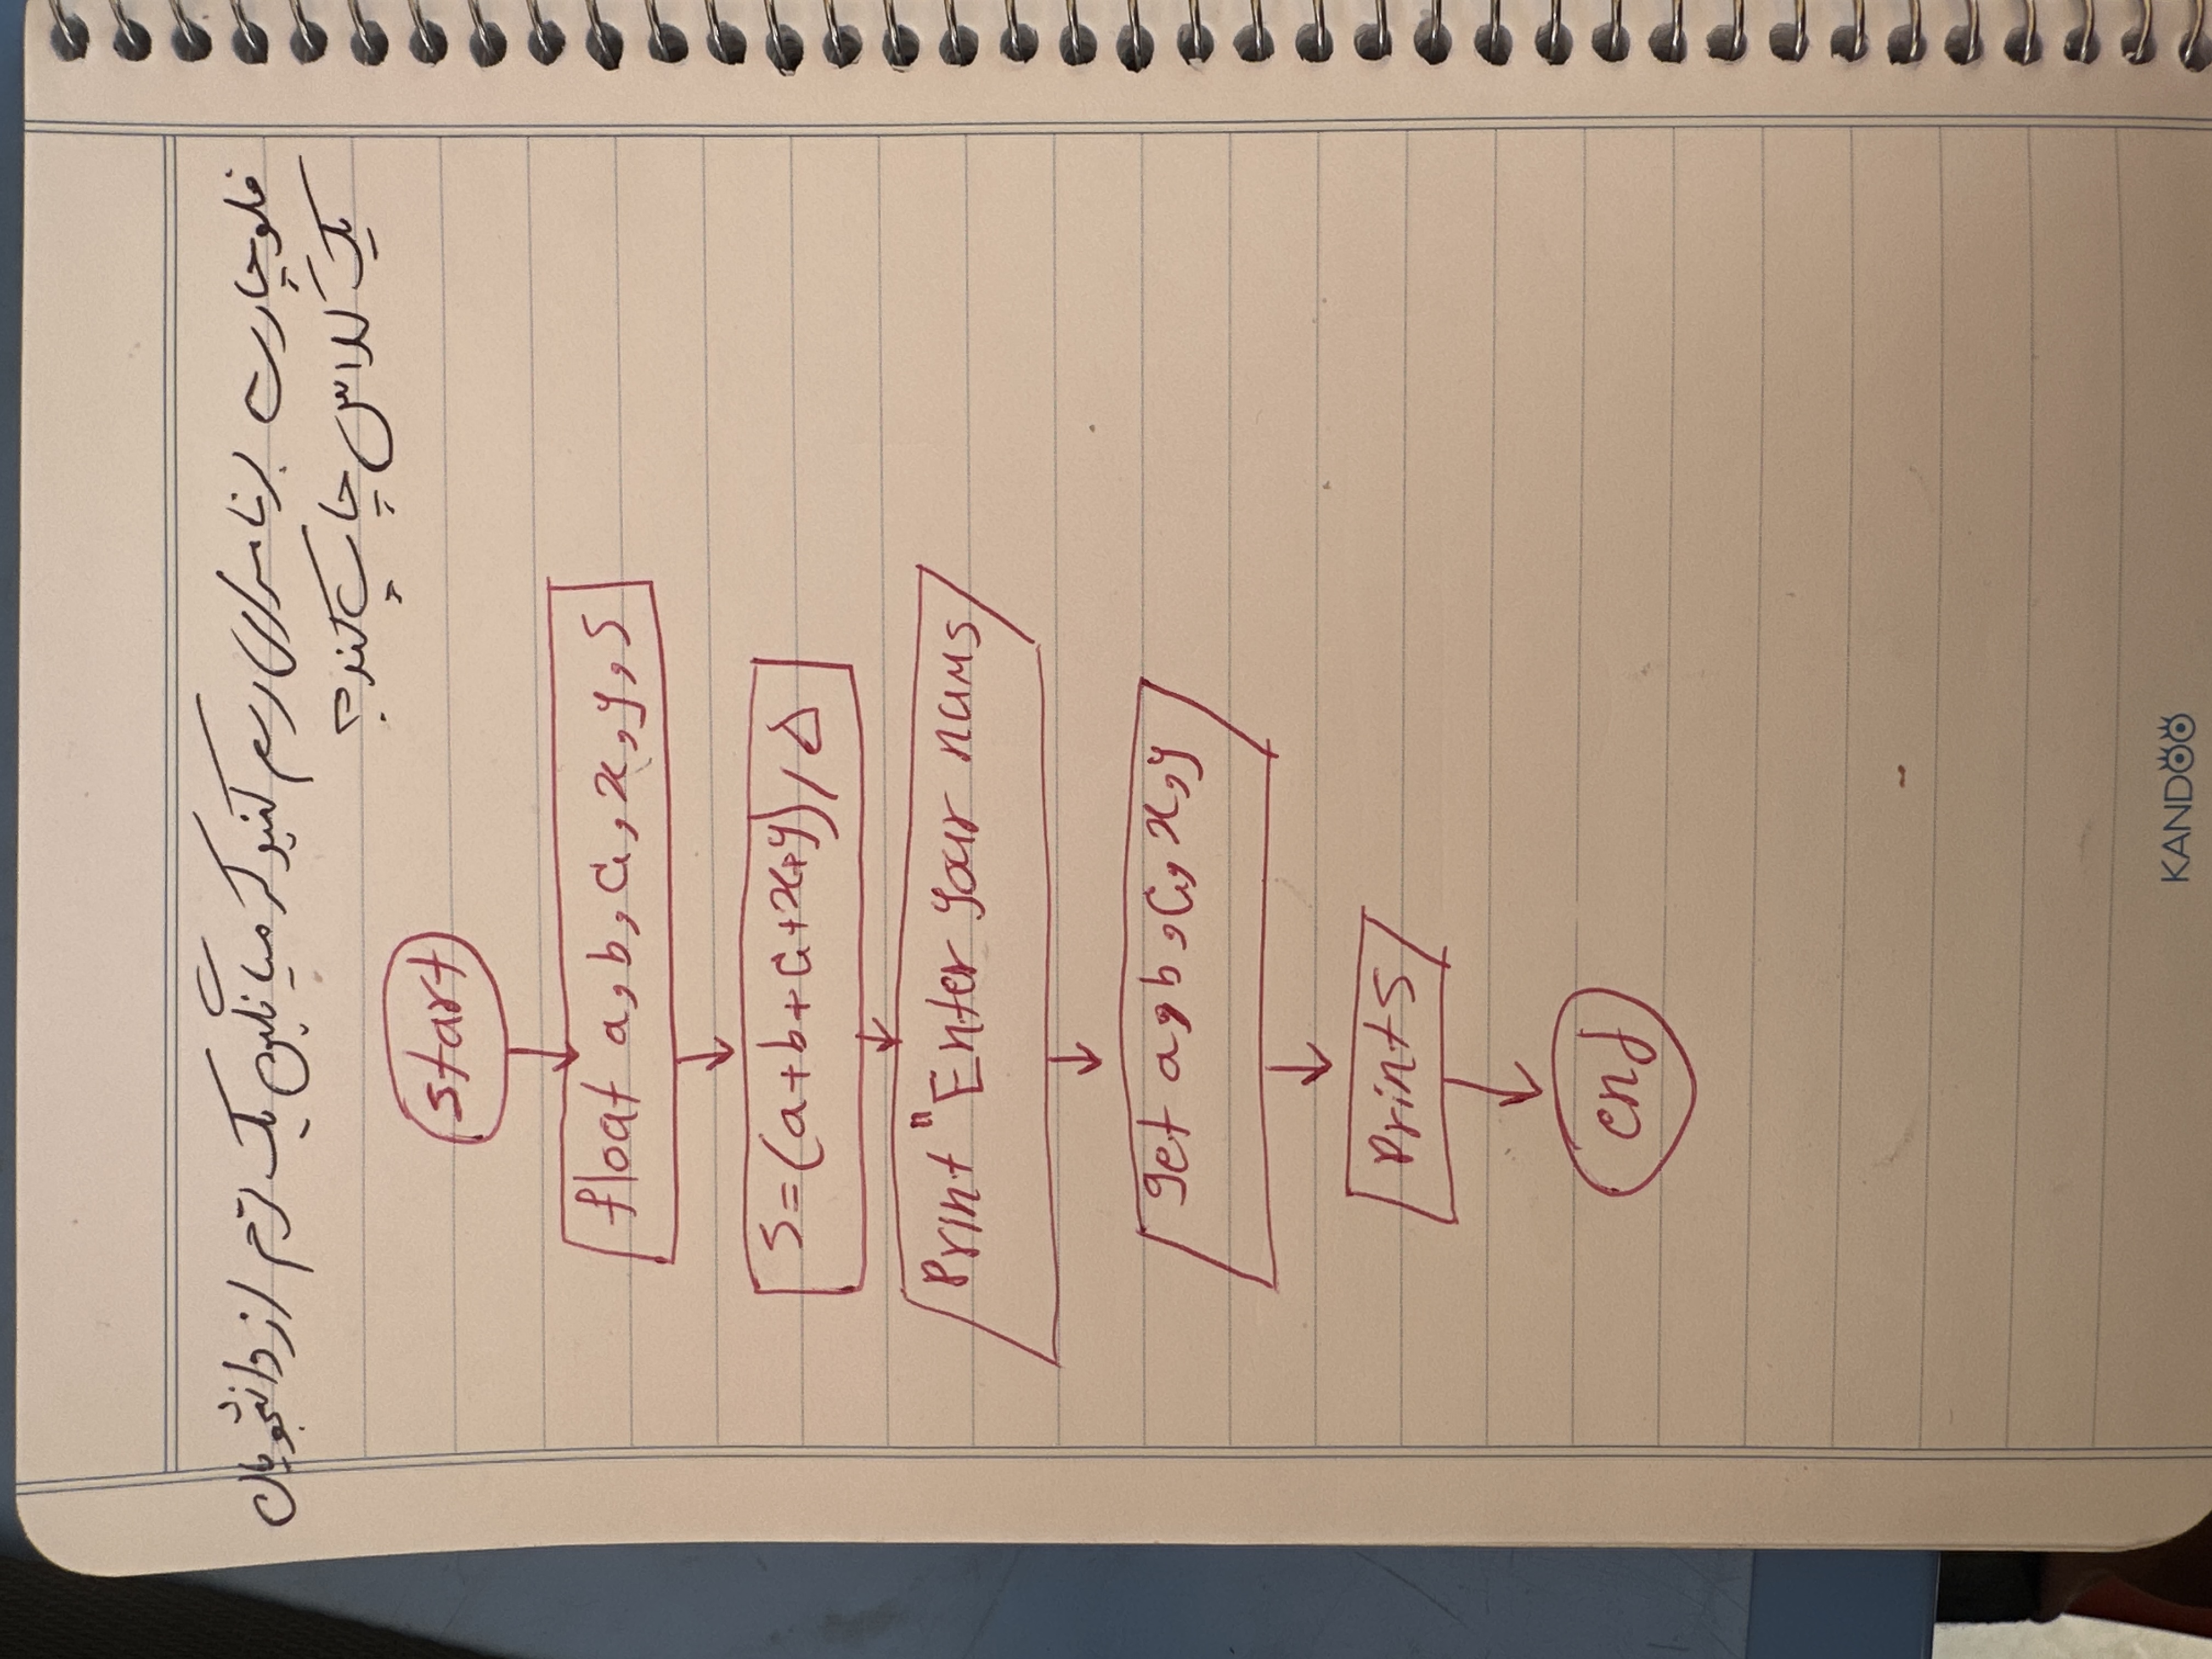 فلوچارت برنامه‌ای رسم کنید که میانگین یک ترم از دانشجویان
یک کلاس چاپ کند؟
start
float a, b, c, x, y, s
s=(a+b+c+x+y)/۵
Print "Enter your nums
get a, b, c, x, y
print s
end
KANDOO